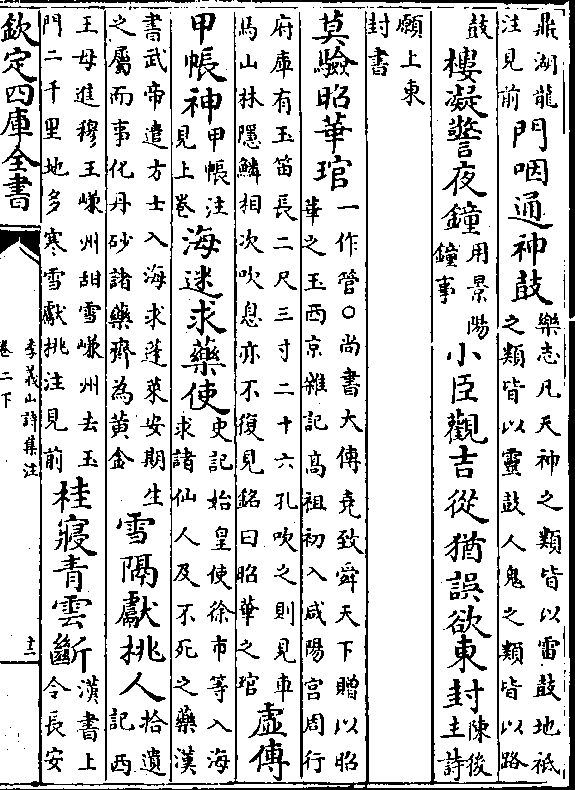 鼎湖龍
注見前
門咽通神鼓
樂志凡天神之類皆以雷鼓地祇
之類皆以靈鼓人鬼之類皆以路
鼓
樓凝警夜鐘
用景陽
鐘事
小臣觀吉從猶誤欲東封
陳後
主詩
願上東
封書
莫驗昭華琯
一作管○尚書大傳堯致舜天下贈以昭
華之玉西京雜記高祖初入咸陽宮周行
府庫有玉笛長二尺三寸二十六孔吹之則見車
馬山林隱鱗相次吹息亦不復見銘曰昭華之琯
虛傳
甲帳神
甲帳注
見上卷
海迷求藥使
史記始皇使徐市等入海
求諸仙人及不死之藥漢
書武帝遣方士入海求蓬萊安期生
之屬而事化丹砂諸藥齊為黃金
雪隔獻桃人
拾遺
記西
王母進穆王嵰州甜雪嵰州去玉
門二千里地多寒雪獻桃注見前
桂寢青雲斷
漢書上
令長安
欽定四庫全書
李義山詩集注
卷二下